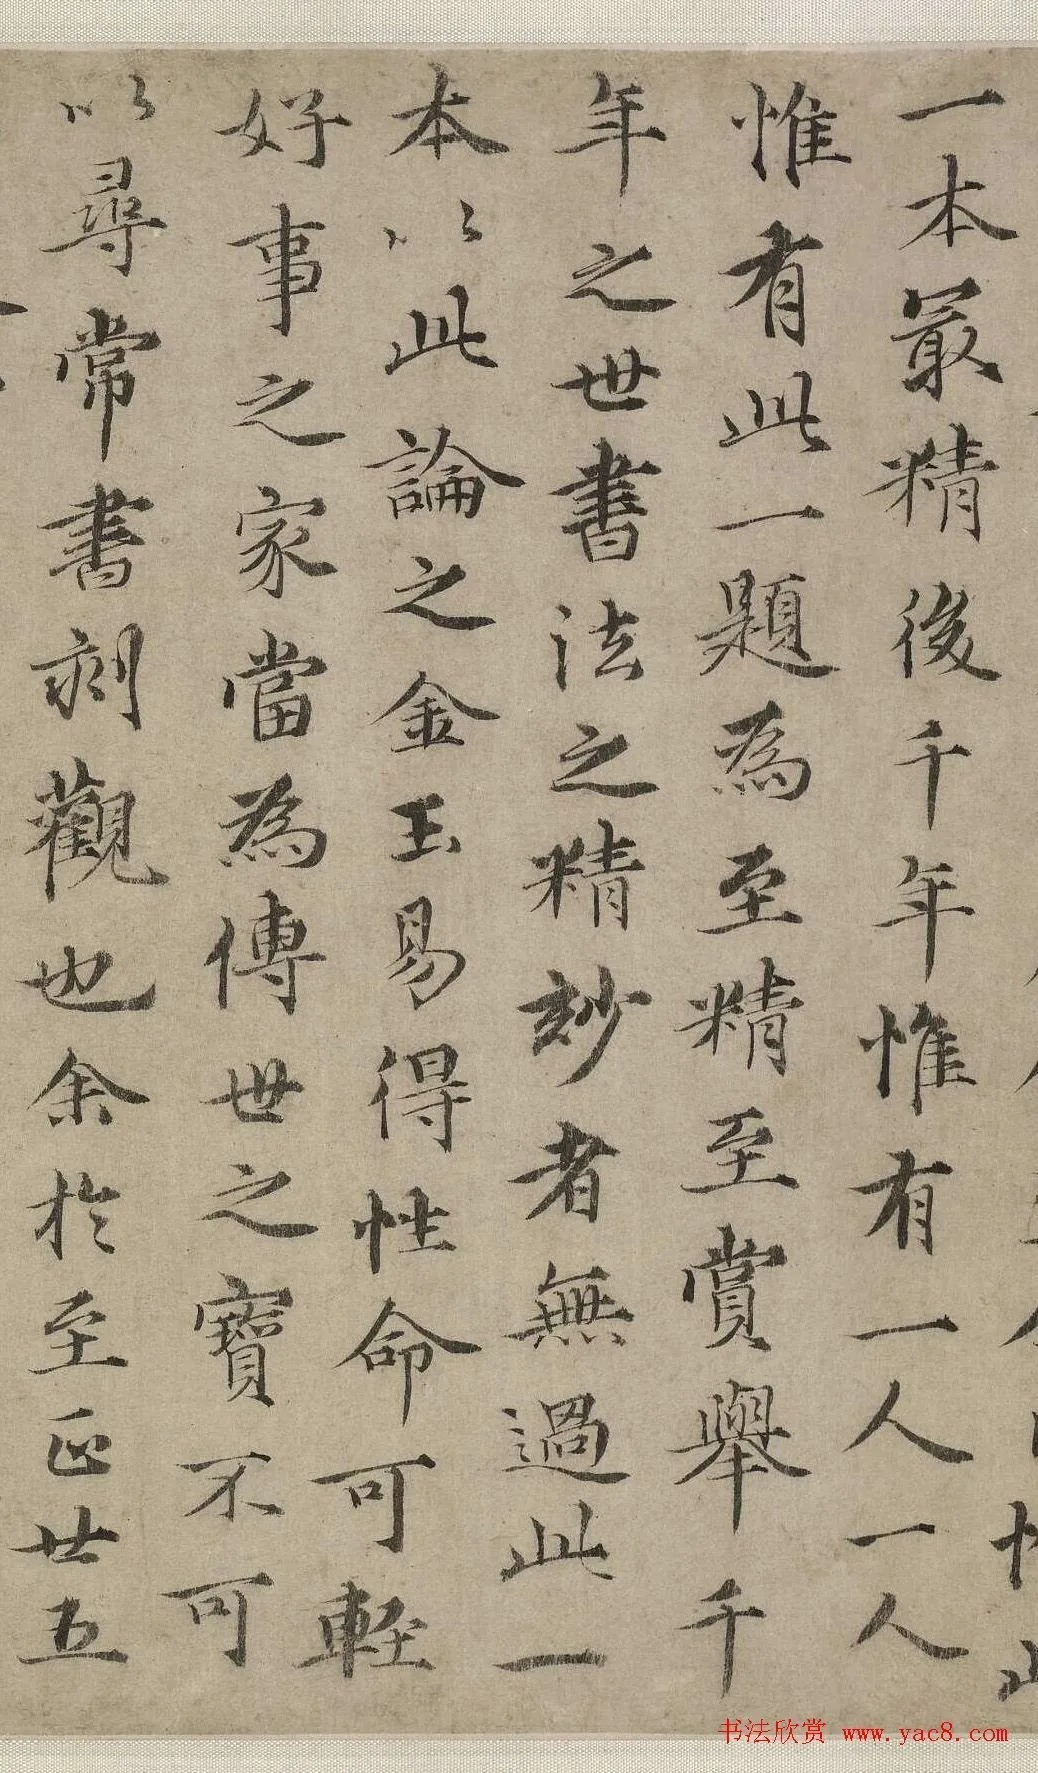 一本最精後千年惟有一人一人
惟有此一題為至精至賞舉千
年之世書法之精妙者無過此一
本以此論之金玉易得性命可輕
好事之家當為傳世之寶不可可
以尋常書刻觀也余於至正廿五
书法欣赏 www.yac8.com